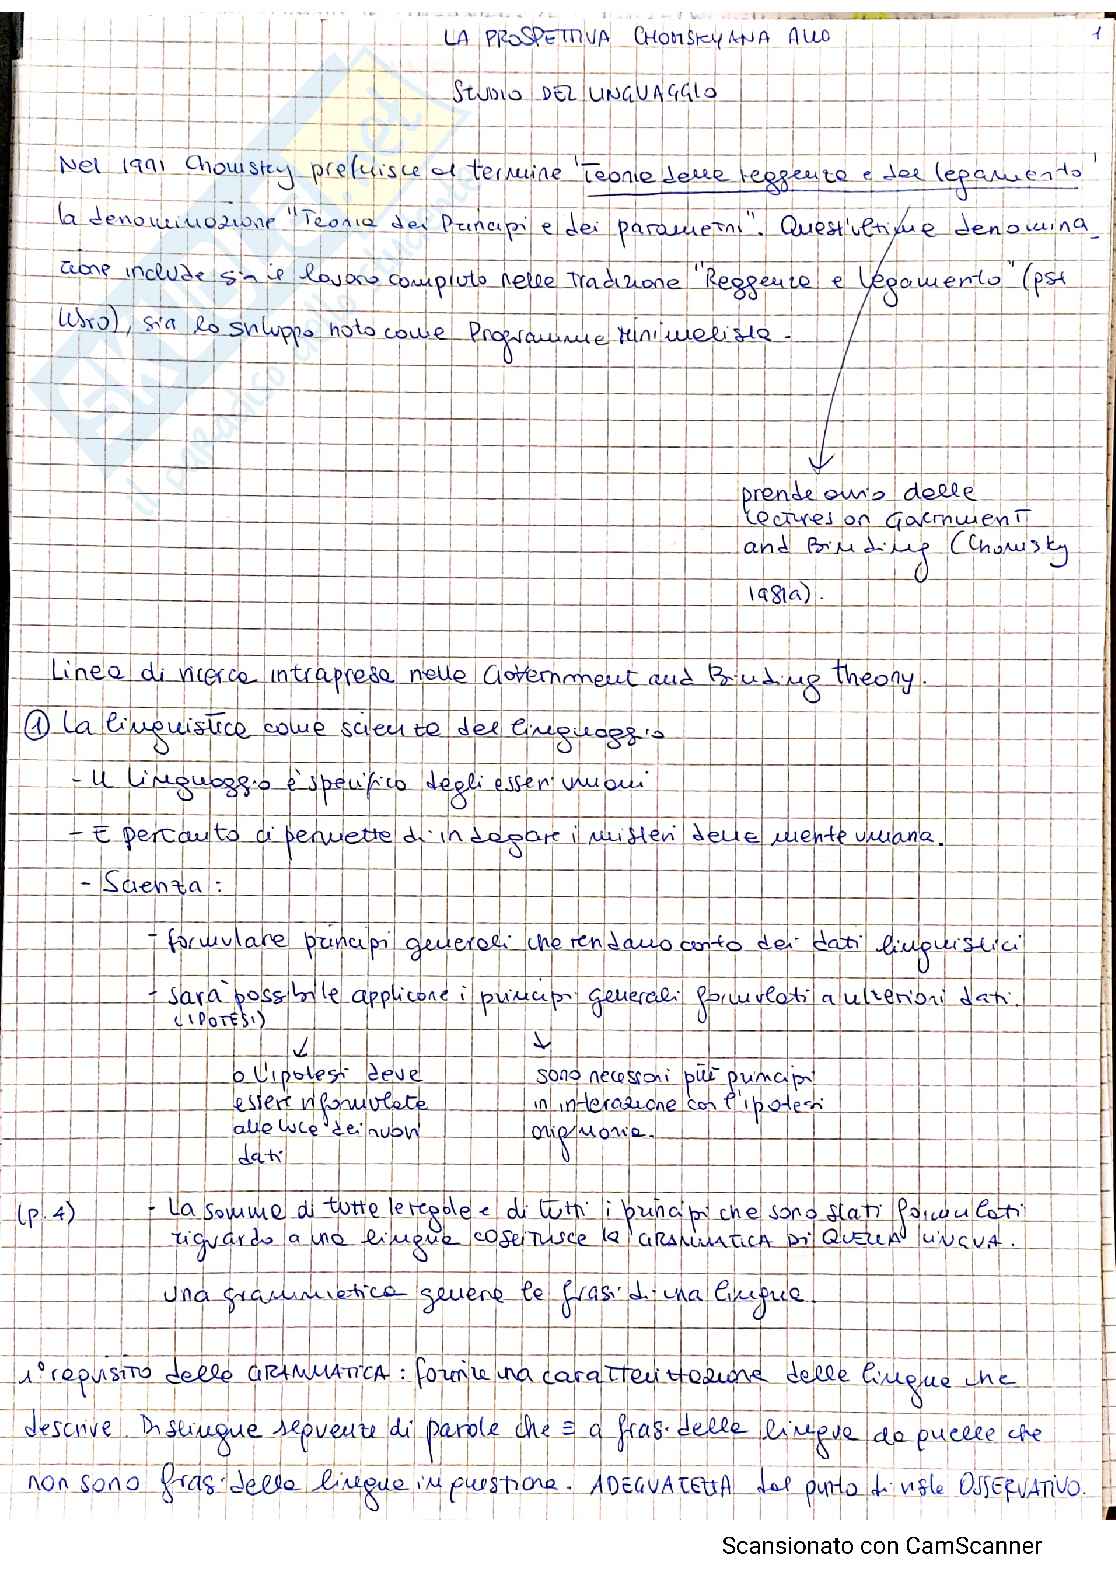 1
LA PROSPETTIVA CHOMSKYANA ALLO
STUDIO DEL LINGUAGGIO
Nel 1991 Chomsky preferisce al termine "Teoria della reggenza e del legamento"
la denominazione "Teoria dei Principi e dei parametri". Quest'ultima denomina_
zione include sia il lavoro compiuto nella tradizione "Reggenza e legamento" (
libro), sia lo sviluppo noto come Programma Minimalista.
prende avvio dalle
Lectures on Government
and Binding (Chomsky
1981a).
Linea di ricerca intrapresa nella Government and Binding theory.
① La linguistica come scienza del linguaggio
- Il linguaggio è specifico degli esseri umani
- È pertanto ci permette di indagare i misteri della mente umana.
- Scienza:
- formulare principi generali che rendano conto dei dati linguistici
- sarà possibile applicare i principi generali formulati a ulteriori dati.
(IPOTESI)
o l'ipotesi deve
essere riformulata
alla luce dei nuovi
dati
sono necessari più principi
in interazione con l'ipotesi
originaria.
(p.4)
- La somma di tutte le regole e di tutti i principi che sono stati formulati
riguardo a una lingua costituisce la GRAMMATICA DI QUELLA LINGUA.
una grammatica genera le frasi di una lingua.
1° requisito della GRAMMATICA: fornire una caratterizzazione della lingua che
descrive. Distingue sequenze di parole che = a frasi della lingua da quelle che
non sono frasi della lingua in questione. ADEGUATEZZA dal punto di vista OSSERVATIVO.
Scansionato con CamScanner